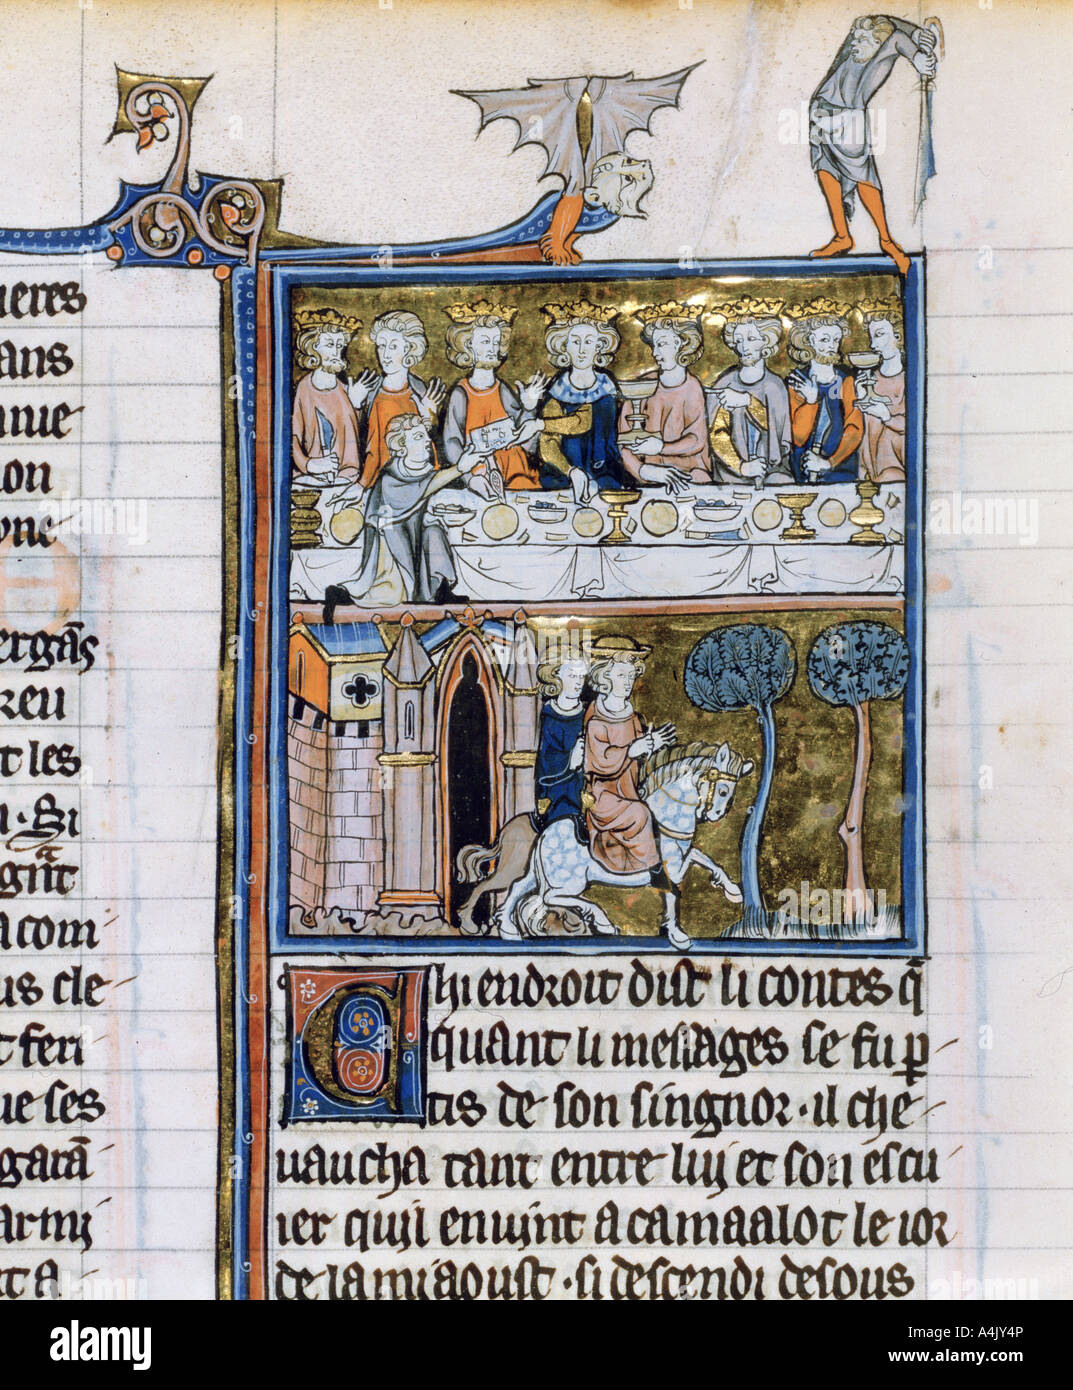 ueres
ans
nnie
non
yne
ergãs
reu
t les
u · Si
gñt
a com
us cle
t feri
ue ses
garã
armi
ta
Chi endroit dist li contes q̃
quant li messages se fu p̱
tis de son singnor · il che
uaucha tant entre luj et son escu
ier quil en uint a camaalot le ior
de la mi aoust · si descendi desous
alamy
Image ID: A4JY4P
www.alamy.com